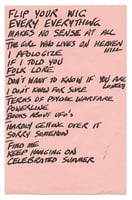 FLIP YOUR WIG
EVERY EVERYTHING
MAKES NO SENSE AT ALL
THE GIRL WHO LIVES ON HEAVEN HILL
I APOLOGIZE
IF I TOLD YOU
FOLK LORE
DON'T WANT TO KNOW IF YOU ARE LONELY
I DON'T KNOW FOR SURE
TERMS OF PSYCHIC WARFARE
POWERLINE
BOOKS ABOUT UFO'S
HARDLY GETTING OVER IT
SORRY SOMEHOW
FIND ME
KEEP HANGING ON
CELEBRATED SUMMER